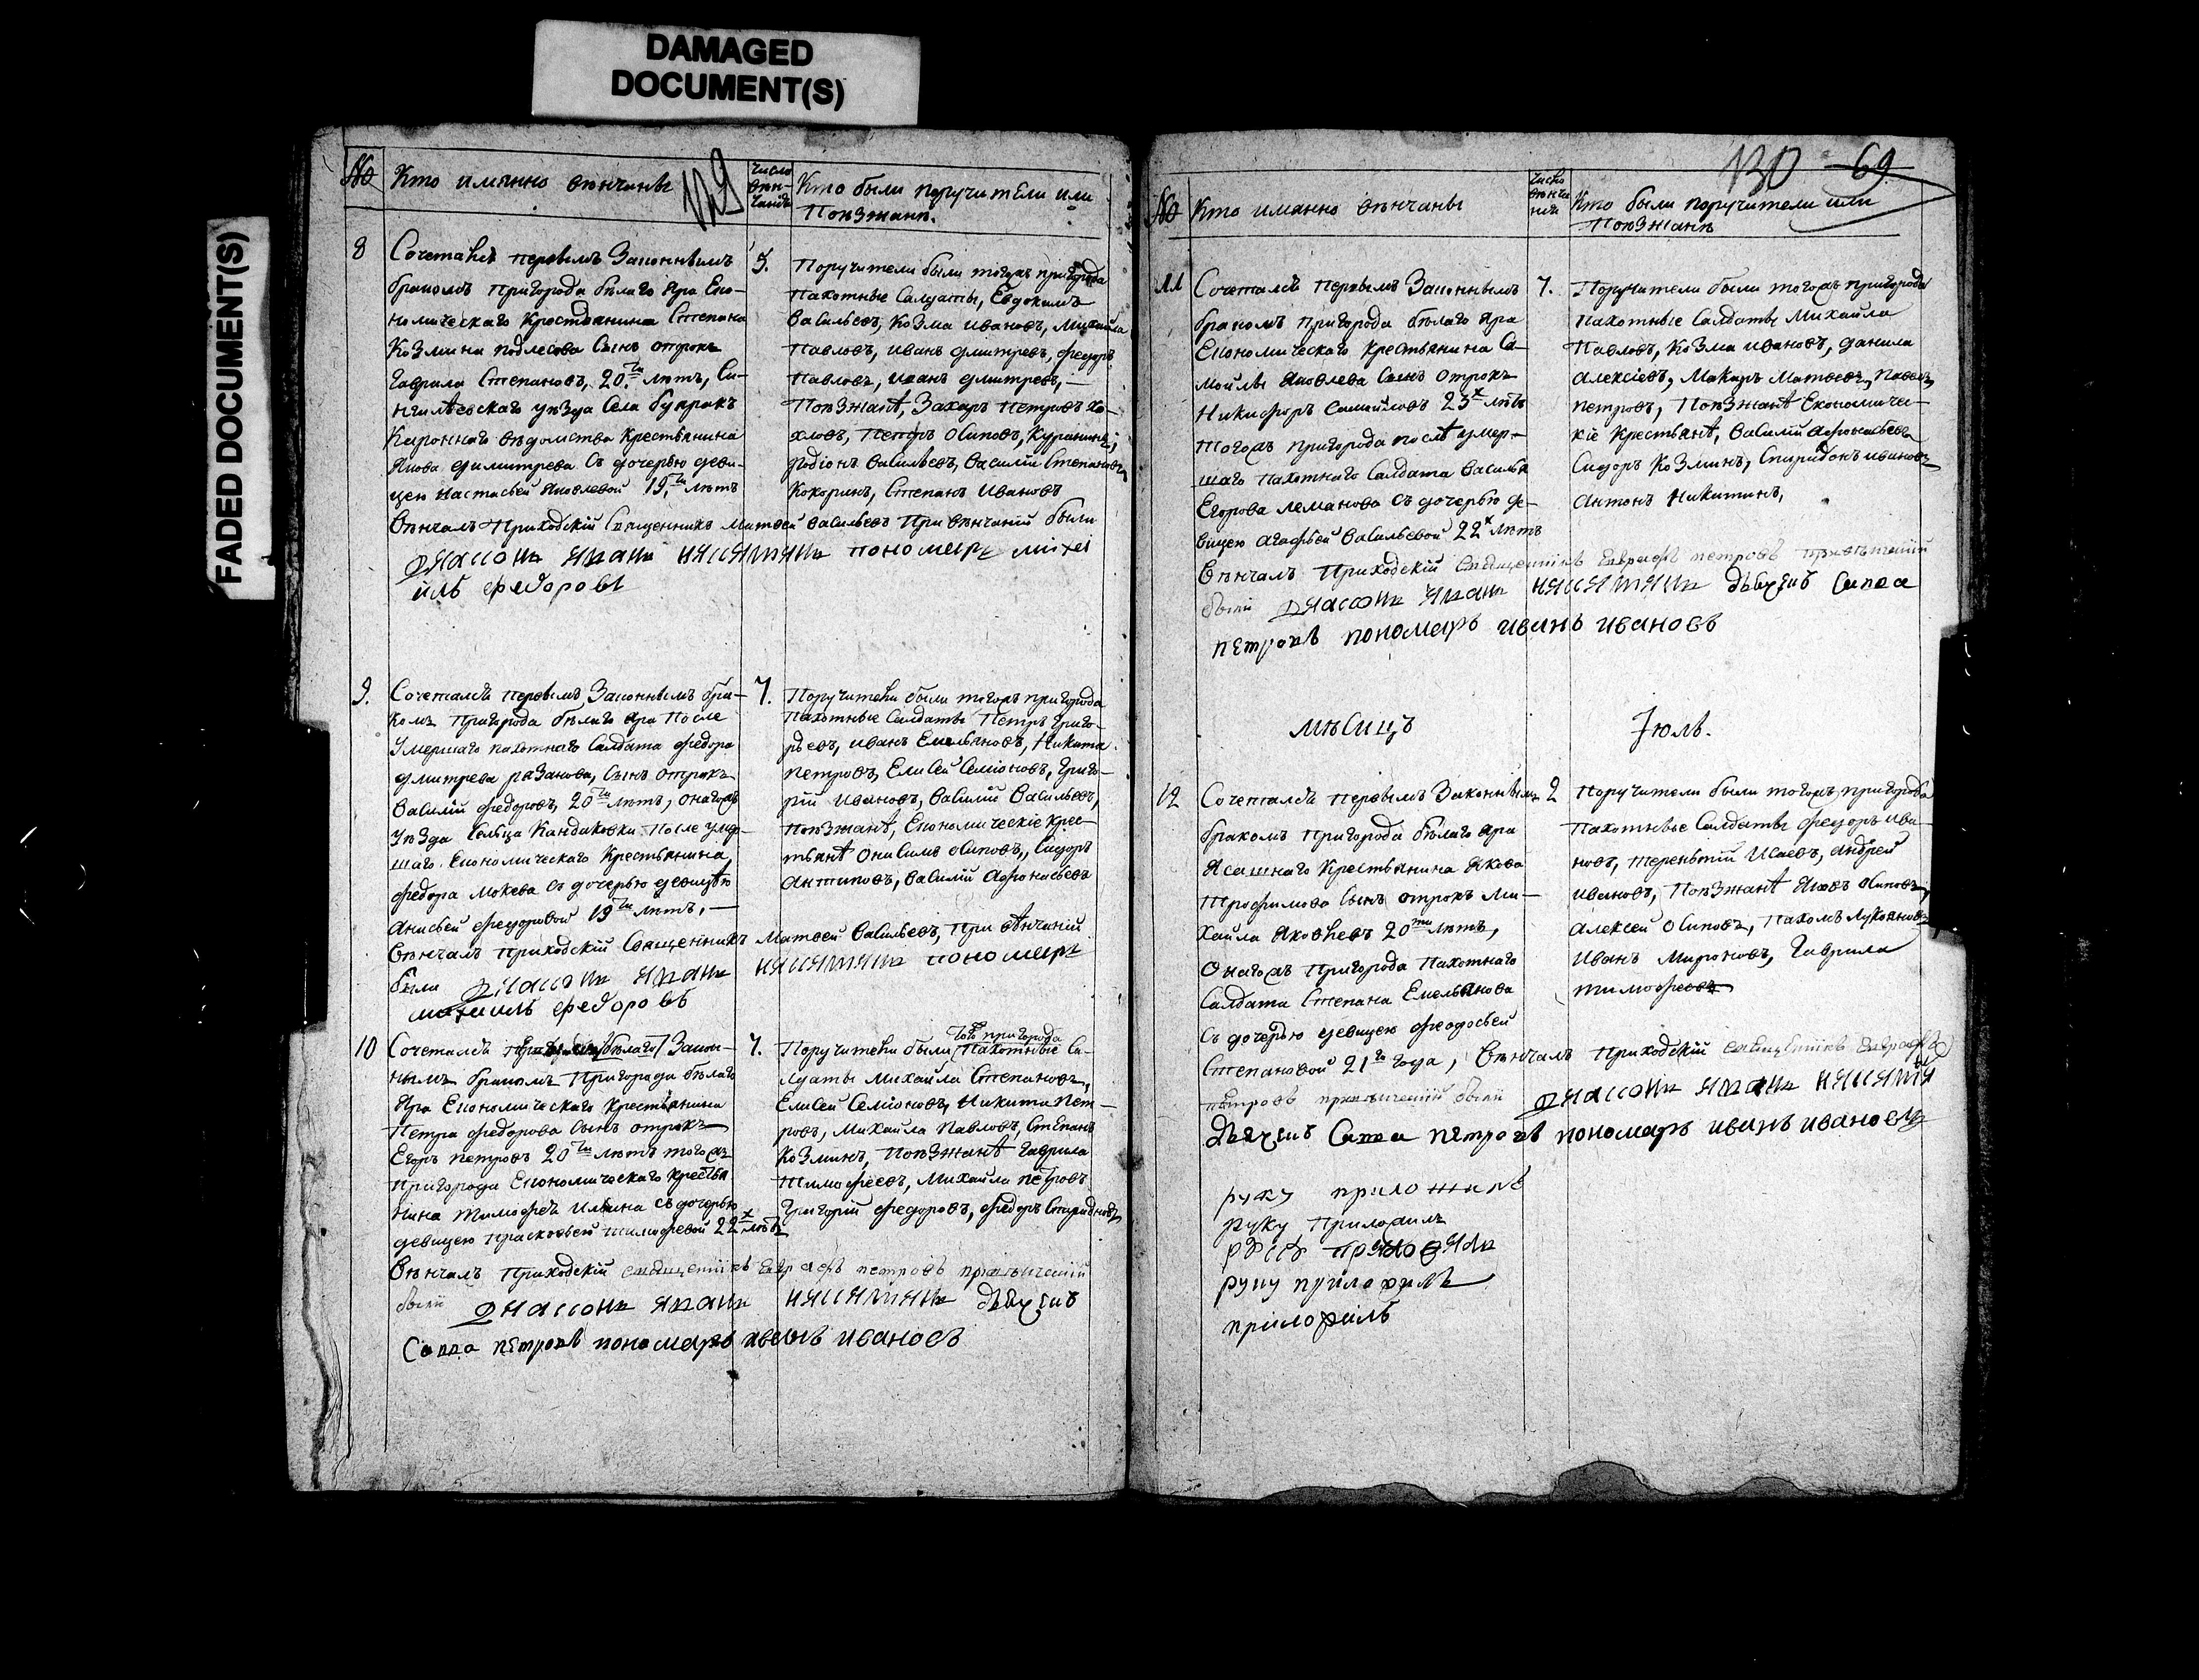 DAMAGED
DOCUMENT(S)
FADED DOCUMENT(S)
№ Кто имянно венчаны
129
число вѣн-чанія
Кто были поручители или
Поѣзжанѣ.
8
Сочетался первымъ Законнымъ
бракомъ пригорода бѣлаго Яра Еко-
номическаго Крестьянина Степана
Козмина подлесова Сынъ отрокъ
Гаврила Степановъ, 20ти лѣтъ, Си-
нгилѣевскаго уѣзда Села
Короннаго вѣдомства Крестьянина
Якова димитрева Съ дочерью деви-
цею Настасьей Яковлевой 19ти лѣтъ
5.
Поручители были тогожъ пригорода
Пахотные Салдаты, Евдокимъ
Васильевъ, Козма ивановъ, Михайла
Павловъ, иванъ дмитревъ, федоръ
Павловъ, иванъ дмитревъ,
Поѣзжанѣ, Захаръ Петровъ Хо-
хловъ, Петръ Осиповъ,
Родіонъ Васильевъ, Василій Степановъ
Кокоринъ, Степанъ Ивановъ
Вѣнчалъ Приходскій Священникъ Матвей Васильевъ При вѣнчаніи были
пономарь михаи
илъ федоровъ
9.
Сочетался первымъ Законнымъ бра-
комъ пригорода бѣлаго Яра После
умершаго пахотнаго Салдата федора
дмитрева разанова, Сынъ отрокъ
Василій федоровъ, 20ти лѣтъ, онагожъ
уѣзда Сельца Кандаковки После умер-
шаго Економическаго Крестьянина
федора мокева Съ дочерью девицею
Анисьей федоровой 19ти лѣтъ,
7.
Поручители были тогожъ пригорода
Пахотные Салдаты Петръ Григо-
рьевъ, иванъ Емельяновъ, Никита
петровъ, Елисей Семіоновъ, Григо-
рій ивановъ, Василій Васильевъ,
Поѣзжанѣ, Економическіе Крес-
тьянѣ Онисимъ Осиповъ, Сидоръ
Антиповъ, Василій Афонасьевъ
Вѣнчалъ приходскій Священникъ Матвей Васильевъ, При вѣнчаніи
были пономарь
михаилъ федоровъ
10
Сочетался Закон-
нымъ бракомъ Пригорода бѣлаго
Яра Економическаго Крестьянина
Петра федорова Сынъ отрокъ
Егоръ петровъ 20ти лѣтъ тогожъ
Пригорода Економическаго Крестья
нина тимофея ильина Съ дочерью
девицею Прасковьей тимофевой 22х лѣтъ
7.
тогожъ пригорода
Поручители были Пахотные Са-
лдаты Михайла Степановъ,
Елисей Семіоновъ, Никита Пет-
ровъ, Михайла Павловъ, Степанъ
Козминъ, Поѣзжанѣ Гаврила
Тимофеевъ, Михайла петровъ
Григорій федоровъ, федоръ Спиридоновъ
Вѣнчалъ Приходскій священникъ Евграфъ петровъ привѣнчаніи
были дьячекъ
Савва петровъ пономарь иванъ ивановъ
130 69
№ Кто имянно вѣнчаны
число вѣнчанія
Кто были поручители или
Поѣзжанѣ
11
Сочетался первымъ Законнымъ
бракомъ пригорода бѣлаго Яра
Економическаго Крестьянина Са-
мойлы Яковлева Сынъ отрокъ
Никифоръ Самойловъ 23х лѣтъ
тогожъ пригорода послѣ умер-
шаго Пахотнаго Салдата Василья
Егорова леманова Съ дочерью де-
вицею Агафьей Васильевой 22х лѣтъ
7.
Поручители были тогожъ пригорода
Пахотные Салдаты Михайла
Павловъ, Козма ивановъ, данила
Алексіевъ, Макаръ Матвеевъ, Павелъ
петровъ, Поѣзжанѣ Економиче-
кіе Крестьянѣ, Василій Афонасьевъ
Сидоръ Козминъ, Спиридонъ ивановъ
Антонъ Никитинъ,
Вѣнчалъ Приходскій священникъ Евграфъ петровъ привѣнчаніи
были дьячекъ Савва
петровъ пономарь иванъ ивановъ
мѣсицъ
Іюль.
12
Сочетался первымъ Законнымъ
бракомъ пригорода бѣлаго Яра
Ясашнаго Крестьянина Якова
Трофимова Сынъ отрокъ Ми-
хайла Яковлевъ 20ти лѣтъ,
Онагожъ пригорода Пахотнаго
Салдата Степана Емельянова
Съ дочерью девицею феодосьей
2
Поручители были тогожъ пригорода
Пахотные Салдаты федоръ ива-
новъ, терентій Исаевъ, андрей
ивановъ, Поѣзжанѣ Яковъ Осиповъ,
Алексей Осиповъ, Пахомъ Лукояновъ
иванъ Мироновъ, Гаврила
тимофеевъ
Степановой 21го года, Вѣнчалъ Приходскій священникъ Евграфъ
петровъ привѣнчаніи были
дьячекъ Савва петровъ пономарь иванъ ивановъ
руку приложилъ
руку Приложилъ
руку приложилъ
руку приложилъ
приложилъ